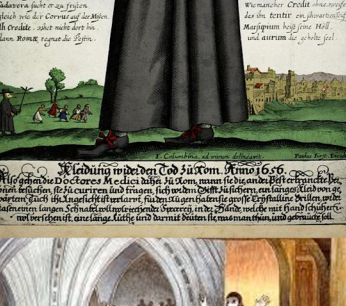 Cadavera sucht er zu fristen
gleich wie der Corvus auf der Misten.
Ah Credite, zihet nicht dort hin,
dann Romæ regnat die Pestin.
Wie mancher Credit ohne
das ihn tentir ein
Marsupium heist seine Höll.
und aurum die geholte seel.
I. Columbina, ad vivum delineavit.
Paulus Fürst
Kleidung wider den Tod zu Rom. Anno 1656.
Also gehen die Doctores Medici daher zu Rom, wann sie die an der Pest erkranckte Per-
sonen besuchen, sie zu curiren und tragen, sich vor dem Gifft zu sichern, ein langes Kleid von ge-
wäxtem Tuch ihr Angesicht ist verlarvt, für den Augen haben sie grosse Crystalline Brillen, wider
Nasen einen langen Schnabel voll wolriechender Specerey, in der Hände, welche mit Handschuhen
wol versehen ist, eine lange Ruthe und darmit deuten sie was man thun, und gebrauchen soll.